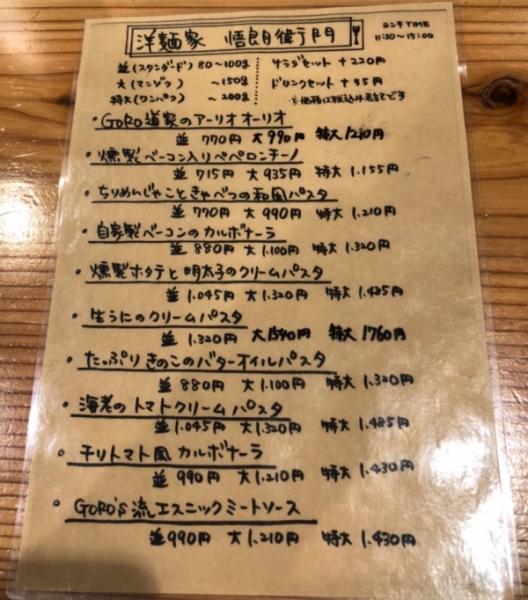 洋麺家 悟朗衛門
ランチTIME
11:30〜15:00
並(スタンダード) 80〜100g
大(マンゾク) 〜150g
特大(ワンパク) 〜200g
サラダセット +220円
ドリンクセット +55円
※価格は税込み表記です
・GORO道家のアーリオオーリオ
並 770円 大 990円 特大 1210円
・燻製ベーコン入りペペロンチーノ
並 715円 大 935円 特大 1.155円
・ちりめんじゃことキャベツの和風パスタ
並 770円 大 990円 特大 1.210円
・自家製ベーコンのカルボナーラ
並 880円 大 1.100円 特大 1.320円
・燻製ホタテと明太子のクリームパスタ
並 1.045円 大 1.320円 特大 1.485円
・生うにのクリームパスタ
並 1.320円 大 1540円 特大 1760円
・たっぷりきのこのバターオイルパスタ
並 880円 大 1.100円 特大 1.320円
・海老のトマトクリームパスタ
並 1.045円 大 1.320円 特大 1.485円
・チリトマト風カルボナーラ
並 990円 大 1.210円 特大 1.430円
・GORO'S流エスニックミートソース
並 990円 大 1.210円 特大 1.430円